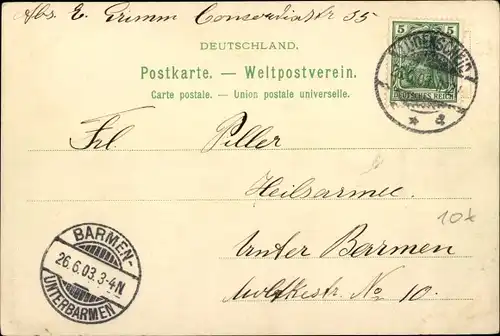 Abs. E. Grimm Concordiastr 35
DEUTSCHLAND.
Postkarte. — Weltpostverein.
Carte postale. — Union postale universelle.
5 5
DEUTSCHES REICH
Frl. Piller
Heilsarmee
Unter Barmen
Moltkestr. No 10.
10x
BARMEN-
26.6.03.3-4N
UNTERBARMEN